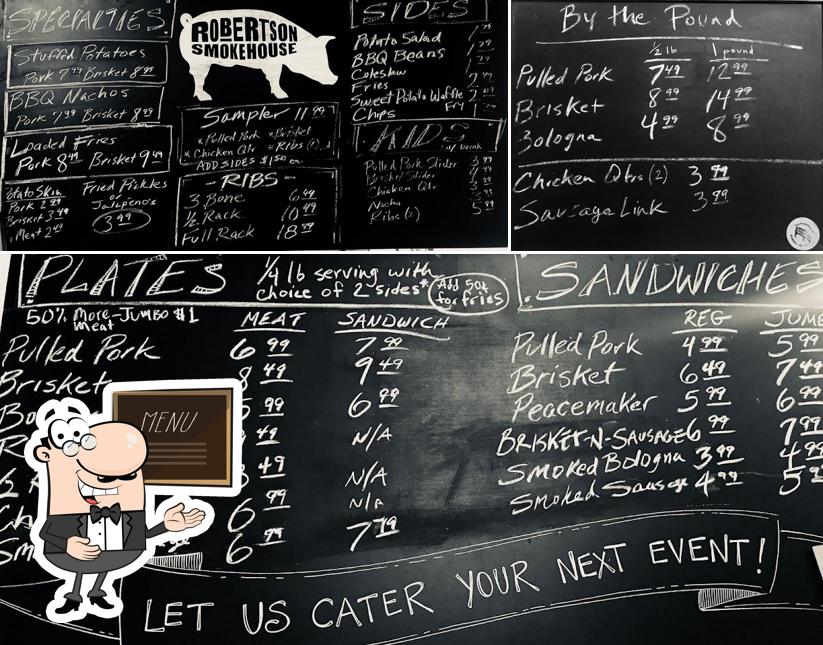 SPECIALTIES
Stuffed Potatoes
Pork 7.99 Brisket 8.99
BBQ Nachos
Pork 7.99 Brisket 8.99
Loaded Fries
Pork 8.49 Brisket 9.49
Potato Skin
Pork 2.99
Brisket 3.49
Meat 2.49
Fried Pickles
or
Jalapeno's
3.99
ROBERTSON
SMOKEHOUSE
Sampler 11.99
*Pulled Pork *Brisket
*Chicken Qtr *Ribs
ADD SIDES $1.50 ea.
-RIBS-
3 Bone 6.49
1/2 Rack 10.49
Full Rack 18.99
SIDES
Potato Salad
BBQ Beans
Coleslaw
Fries
Sweet Potato Waffle
Fry
Chips
KIDS
w/ drink
Pulled Pork Slider
Brisket Slider
Chicken Qtr
Nacho
Ribs (2)
By the Pound
1/2 lb 1 pound
Pulled Pork 7.49 12.99
Brisket 8.99 14.99
Bologna 4.99 8.99
Chicken Qtrs (2) 3.99
Sausage Link 3.99
PLATES
1/4 lb serving with
choice of 2 sides*
Add 50¢
for fries
50% More-Jumbo $1
Meat
MEAT SANDWICH
Pulled Pork 6.99 7.99
Brisket 8.49 9.49
Bo .99 6.99
.49 N/A
.49 N/A
Ch 6.99 N/A
Sm 6.99 7.79
MENU
SANDWICHES
REG JUMB
Pulled Pork 4.99 5.99
Brisket 6.49 7.49
Peacemaker 5.99 6.99
BRISKET-N-SAUSAGE 6.99 7.99
Smoked Bologna 3.99 4.99
Smoked Sausage 4.99 5
LET US CATER YOUR NEXT EVENT!